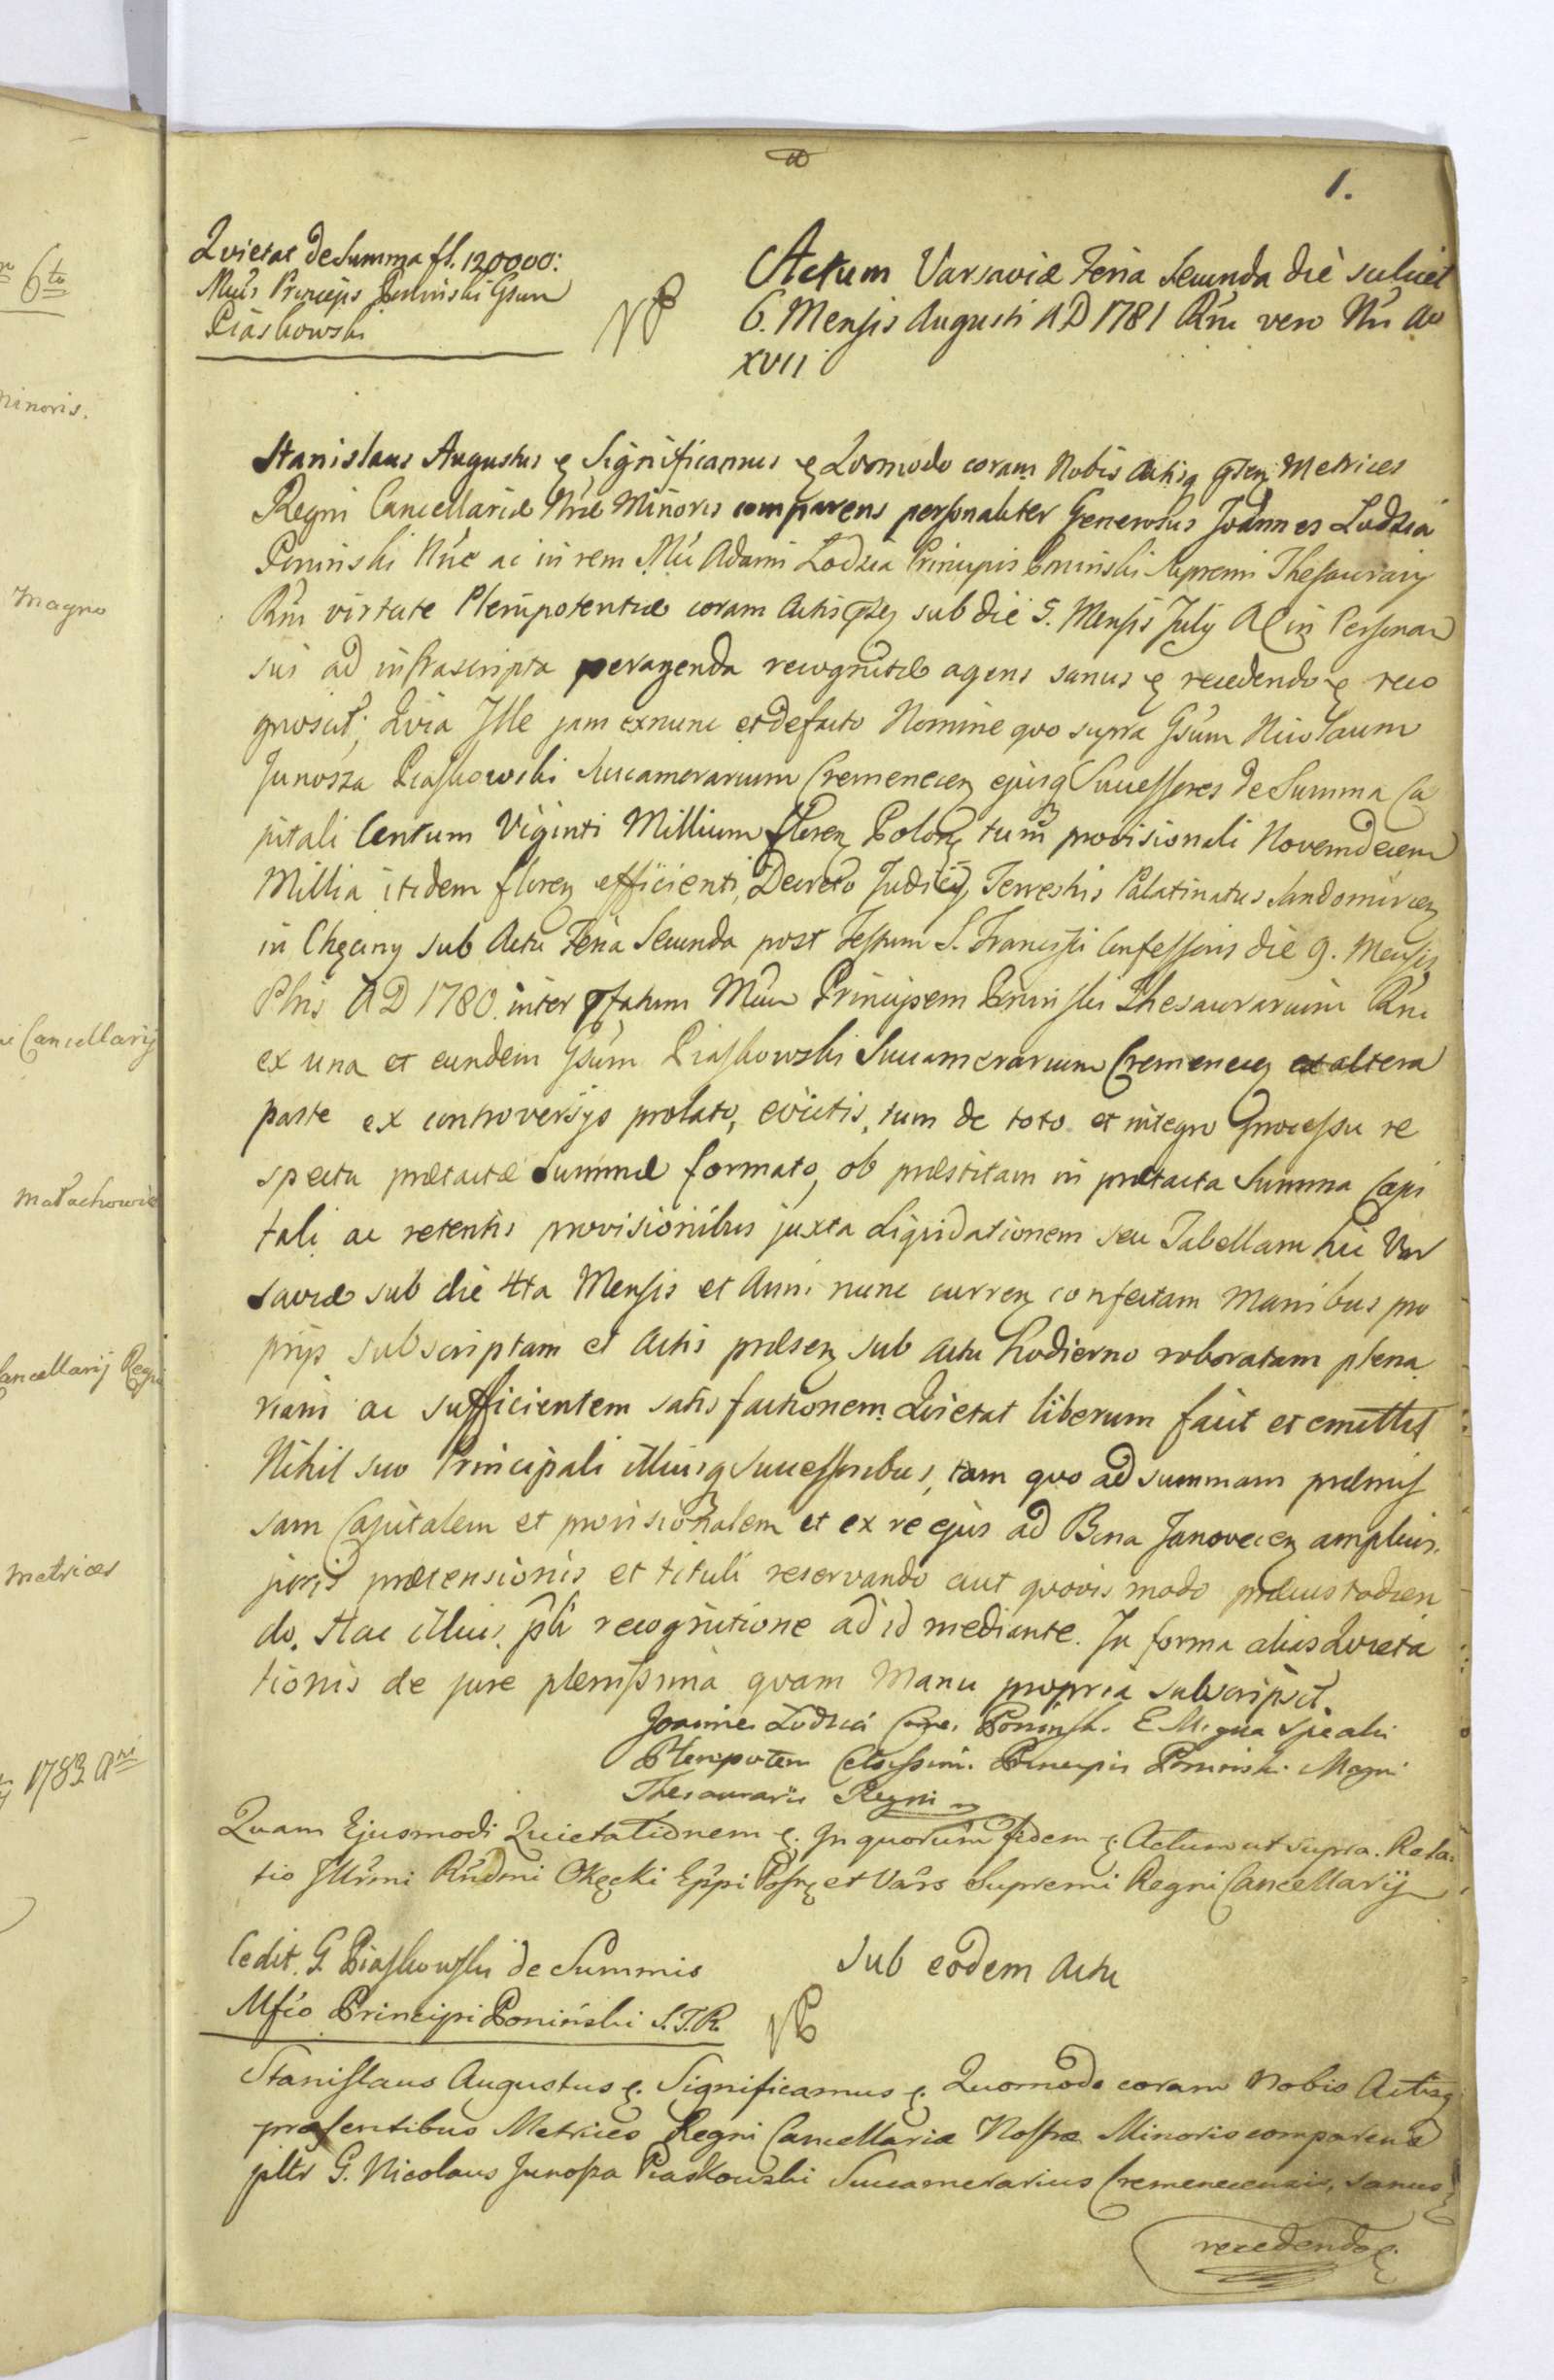 1.
Qvietat de Summa fl. 120000:
Mũs Princeps Poninski Gsum
Piaskowski
Actum Varsaviæ Feria Secunda die scilicet
6. Mensis Augusti AD 1781 Rñi vero Nri Ao
XVII
Stanislaus Augustus & Significamus & Qvomodo coram Nobis Actisq psen Metrices
Regni Cancellariæ Nræ Minoris comparens personaliter Generosus Joannes Lodzia
Poninski Nũc ac in rem Mci Adami Lodzia Principis Poninski Supremi Thesaurarij
Rñi virtute Plenipotentiæ coram Actis psen sub die 5. Mensis July in Personam
sui ad infrascripta peragenda recognitæ agens sanus & recedendo & reco
gnovit; Qvia Ille jam exnunc et defacto Nomine qvo supra Gsum Nicolaum
Junosza Piaskowski Succamerarium Cremenecen ejusq Successores de Summa Ca
pitali Centum Viginti Millium floren Polon, tum provisionali Novemdecem
Millia itidem floren efficienti, Decreto Judicij Terrestris Palatinatus Sandomirien
in Chęciny sub Actu Feria Secunda post Festum S. Francisci Confessoris die 9. Mensis
Obris AD 1780. inter pfatum Mcum Principem Poninski Thesaurarium Rñi
ex una et eundem Gsum Piaskowski Succamerarium Cremenecen et altera
parte ex controversijs prolato, evictis, tum de toto et integro processu re
spectu prætactæ Summæ formato, ob præstitam in prætacta Summa Capi
tali ac retentis provisionibus juxta Liquidationem seu Tabellam hic Var
saviæ sub die 4ta Mensis et Anni nunc curren confectam Manibus pro
prijs subscriptam et Actis præsen sub actu hodierno roboratam plena
riam ac sufficientem satisfactionem Qvietat liberum facit et emittit
Nihil suo Principali illiusq Successoribus, tam qvo ad summam præmis
sam Capitalem et provisionalem et ex re ejus ad Bona Janovecen amplius
juris prætensionis et tituli reservando aut qvovis modo præcustodien
do. Hac illius pñli recognitione ad id mediante. In forma alias Qvieta
tionis de jure plenissima qvam Manu propria subscripsit.
Joannes Lodzia Poninski
Plenipoten Celsissimi Principis Poninski Magni
Thesaurarii Regni
Quam Ejusmodi Quietationem &. In quorum fidem &. Actum ut supra. Rela
tio Illũmi Rñdmi Okęcki Eppi Posn et Vars Supremi Regni Cancellarij
Cedit G. Piaskowski de Summis
Mfco Principi Poniński S.T.R.
Sub eodem Actu
Stanislaus Augustus &. Significamus &. Quomodo coram Nobis Actisq
præsentibus Metrices Regni Cancellariæ Nostræ Minoris comparens
pltr G. Nicolaus Junosza Piaskowski Succamerarius Cremenecensis, sanus &
recedendo &.
6to
minoris.
Magno
Cancellarij
Małachowie
Cancellarij Regni
Metrices
1783 Ani